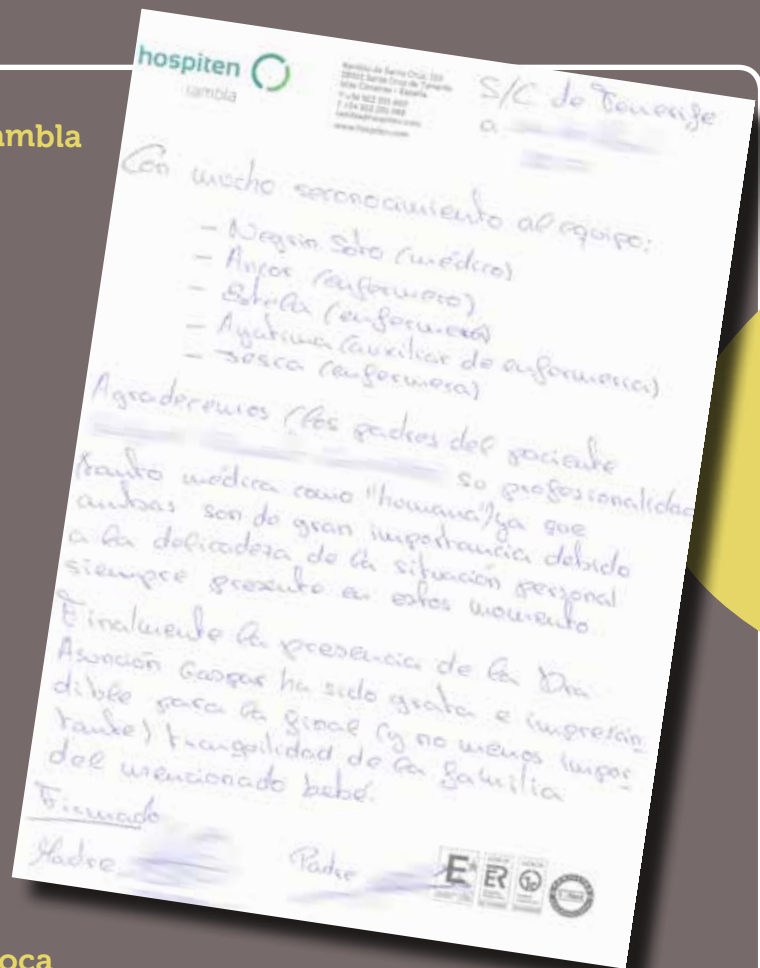 ambla
hospiten
rambla
Rambla de Santa Cruz, 115
38001 Santa Cruz de Tenerife
Islas Canarias - España
www.hospiten.com
S/C de Tenerife
a
Con mucho reconocimiento al equipo:
- Negrin Soto (médico)
- Ancor (enfermero)
- Estrella (enfermera)
- Ayatima (auxiliar de enfermeria)
- (enfermera)
Agradecemos (los padres del paciente
su profesionalidad
tanto médica como "humana") ya que
ambas son de gran importancia debido
a la delicadeza de la situación personal
siempre presente en estos momento.
Finalmente la presencia de la Dra
Asunción Gaspar ha sido grata e imprescin-
dible para la final (y no menos impor-
tante) tranquilidad de la familia
del mencionado bebé.
Firmado
Madre
Padre
E
ER
oca